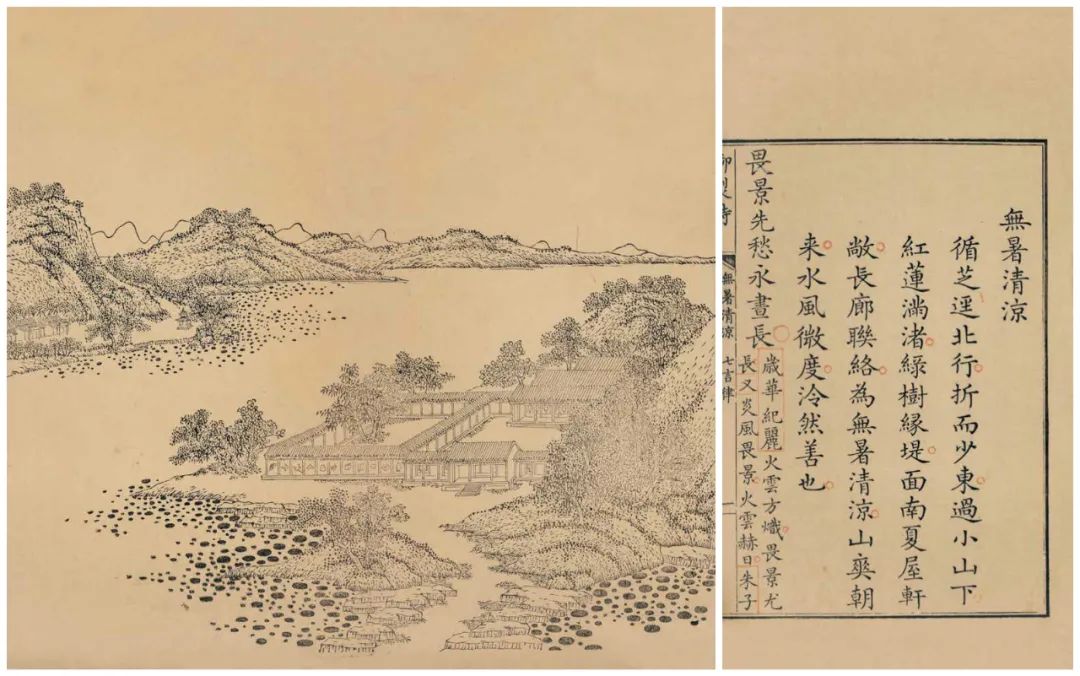 無暑清涼
循芝逕北行折而少東過小山下
紅蓮滿渚綠樹緣堤面南夏屋軒
敞長廊聯絡為無暑清涼山爽朝
来水風微度泠然善也
畏景先愁永晝長
歲華紀麗火雲方熾畏景尤
長又炎風畏景火雲赫日朱子
無暑清涼 七言律 一